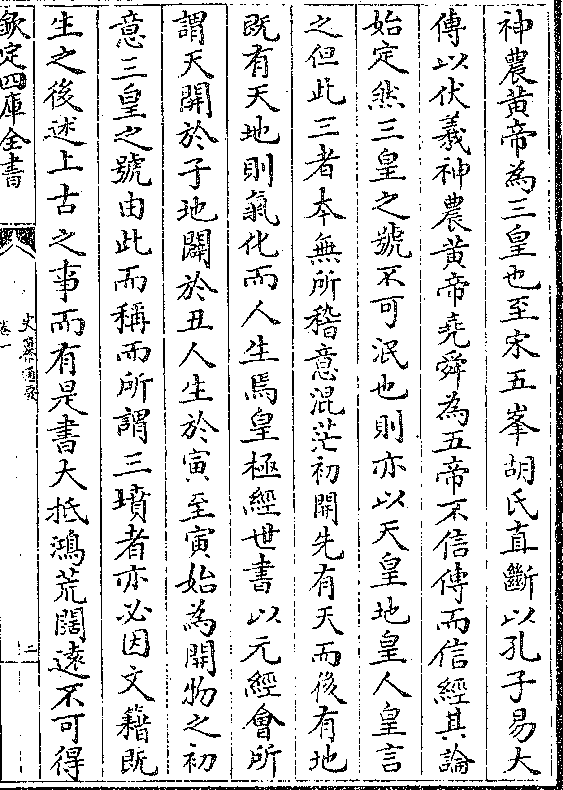 神農黄帝為三皇也至宋五峯胡氏直斷以孔子易大
傳以伏羲神農黄帝堯舜為五帝不信傳而信經其論
始定然三皇之號不可泯也則亦以天皇地皇人皇言
之但此三者本無所稽意混茫初開先有天而後有地
既有天地則氣化而人生焉皇極經世書以元經會所
謂天開於子地闢於丑人生於寅至寅始為開物之初
意三皇之號由此而稱而所謂三墳者亦必因文籍既
生之後述上古之事而有是書大抵鴻荒闊遠不可得
欽定四庫全書
史纂通要
卷一
二